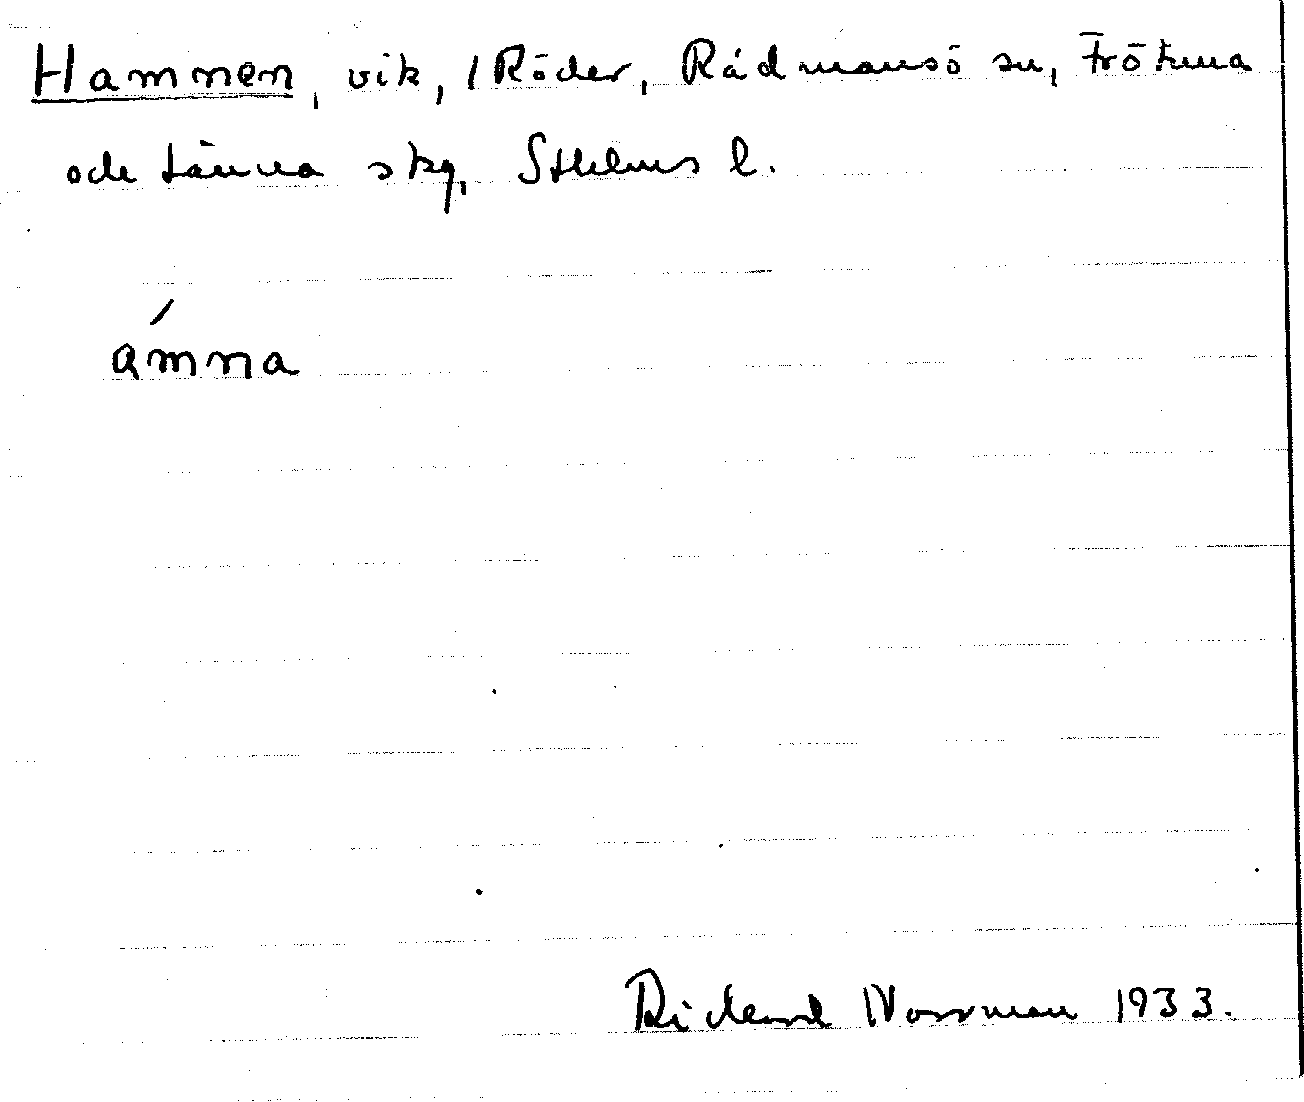 Hamnen, vik, i Röder, Rådmansö sn, Frötuna
och Länna skg, Sthlms l.
ámna
Rickard Norrman 1933.